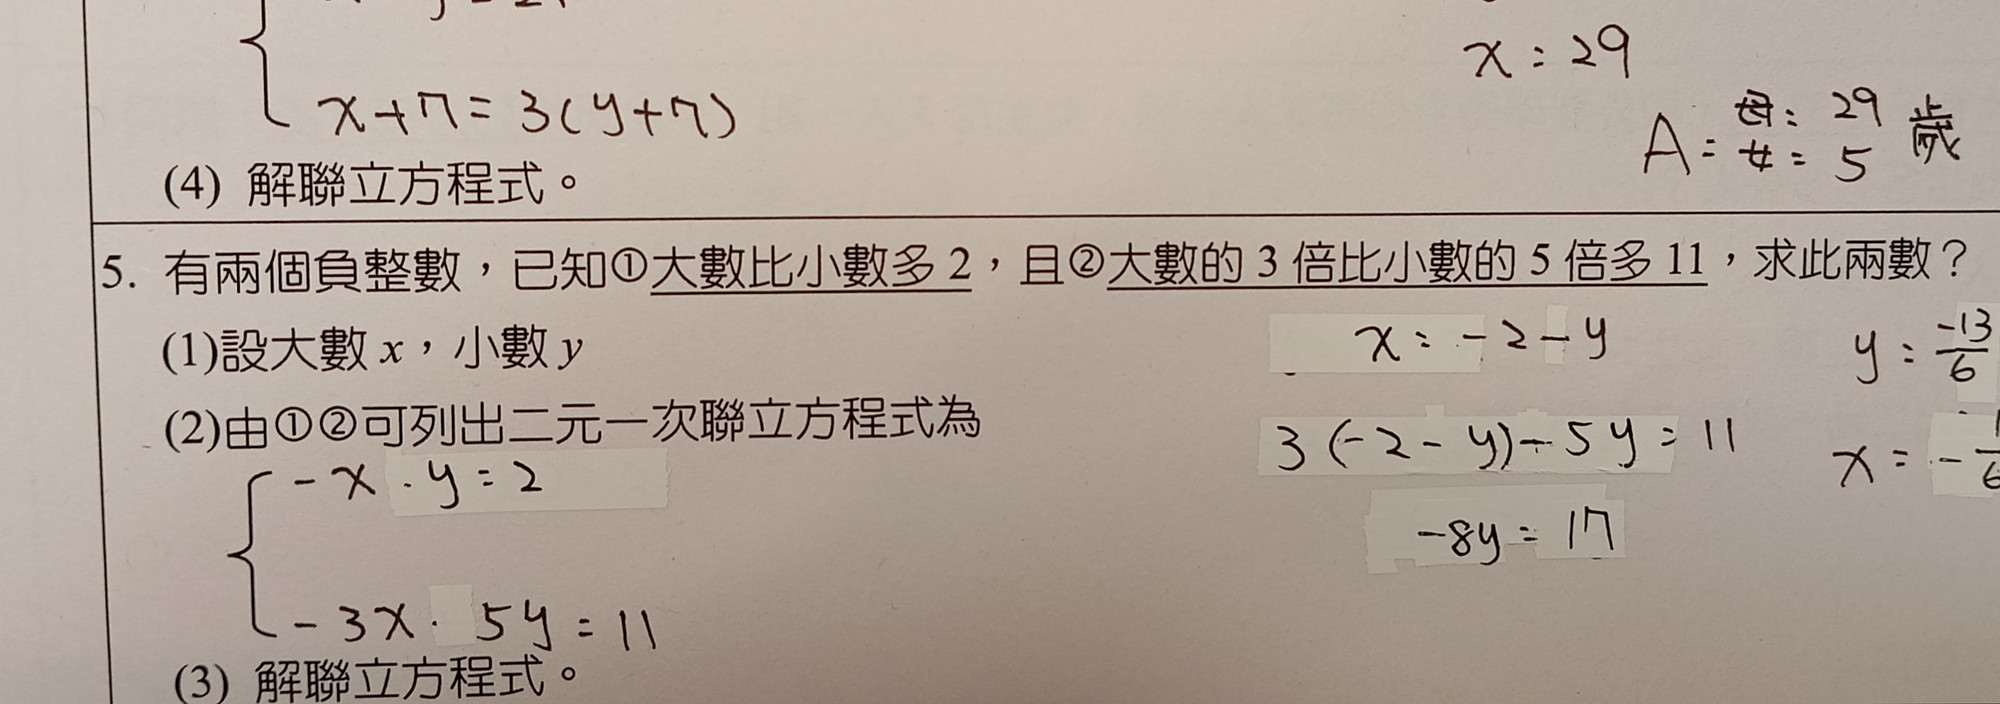 x+7=3(y+7)
(4) 解聯立方程式。
x=29
A=母:29
女=5 歲
5. 有兩個負整數,已知①大數比小數多 2,且②大數的 3 倍比小數的 5 倍多 11,求此兩數?
(1)設大數 x,小數 y
(2)由①②可列出二元一次聯立方程式為
-x·y=2
-3x·5y=11
(3) 解聯立方程式。
x=-2-y
3(-2-y)-5y=11
-8y=17
y=-13/6
x=-